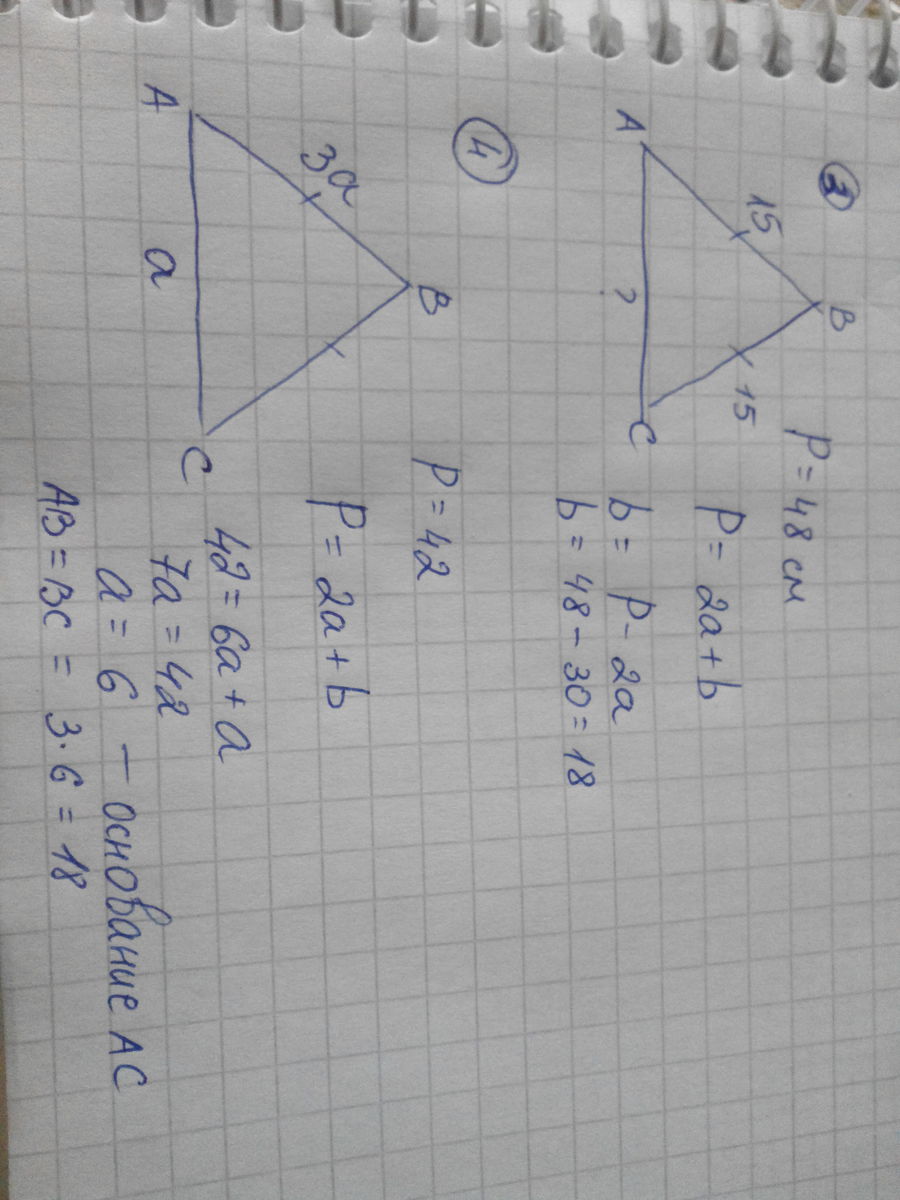 ③
B
15
15
A
?
C
P = 48 см
P = 2a + b
b = P - 2a
b = 48 - 30 = 18
④
B
3a
A
a
C
P = 42
P = 2a + b
42 = 6a + a
7a = 42
a = 6 — основание AC
AB = BC = 3·6 = 18